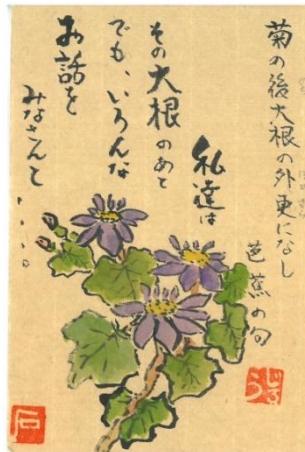 菊の後大根の外更になし
芭蕉の句
私達は
その大根のあと
でも、いろんな
お話を
みなさんと
・・・。